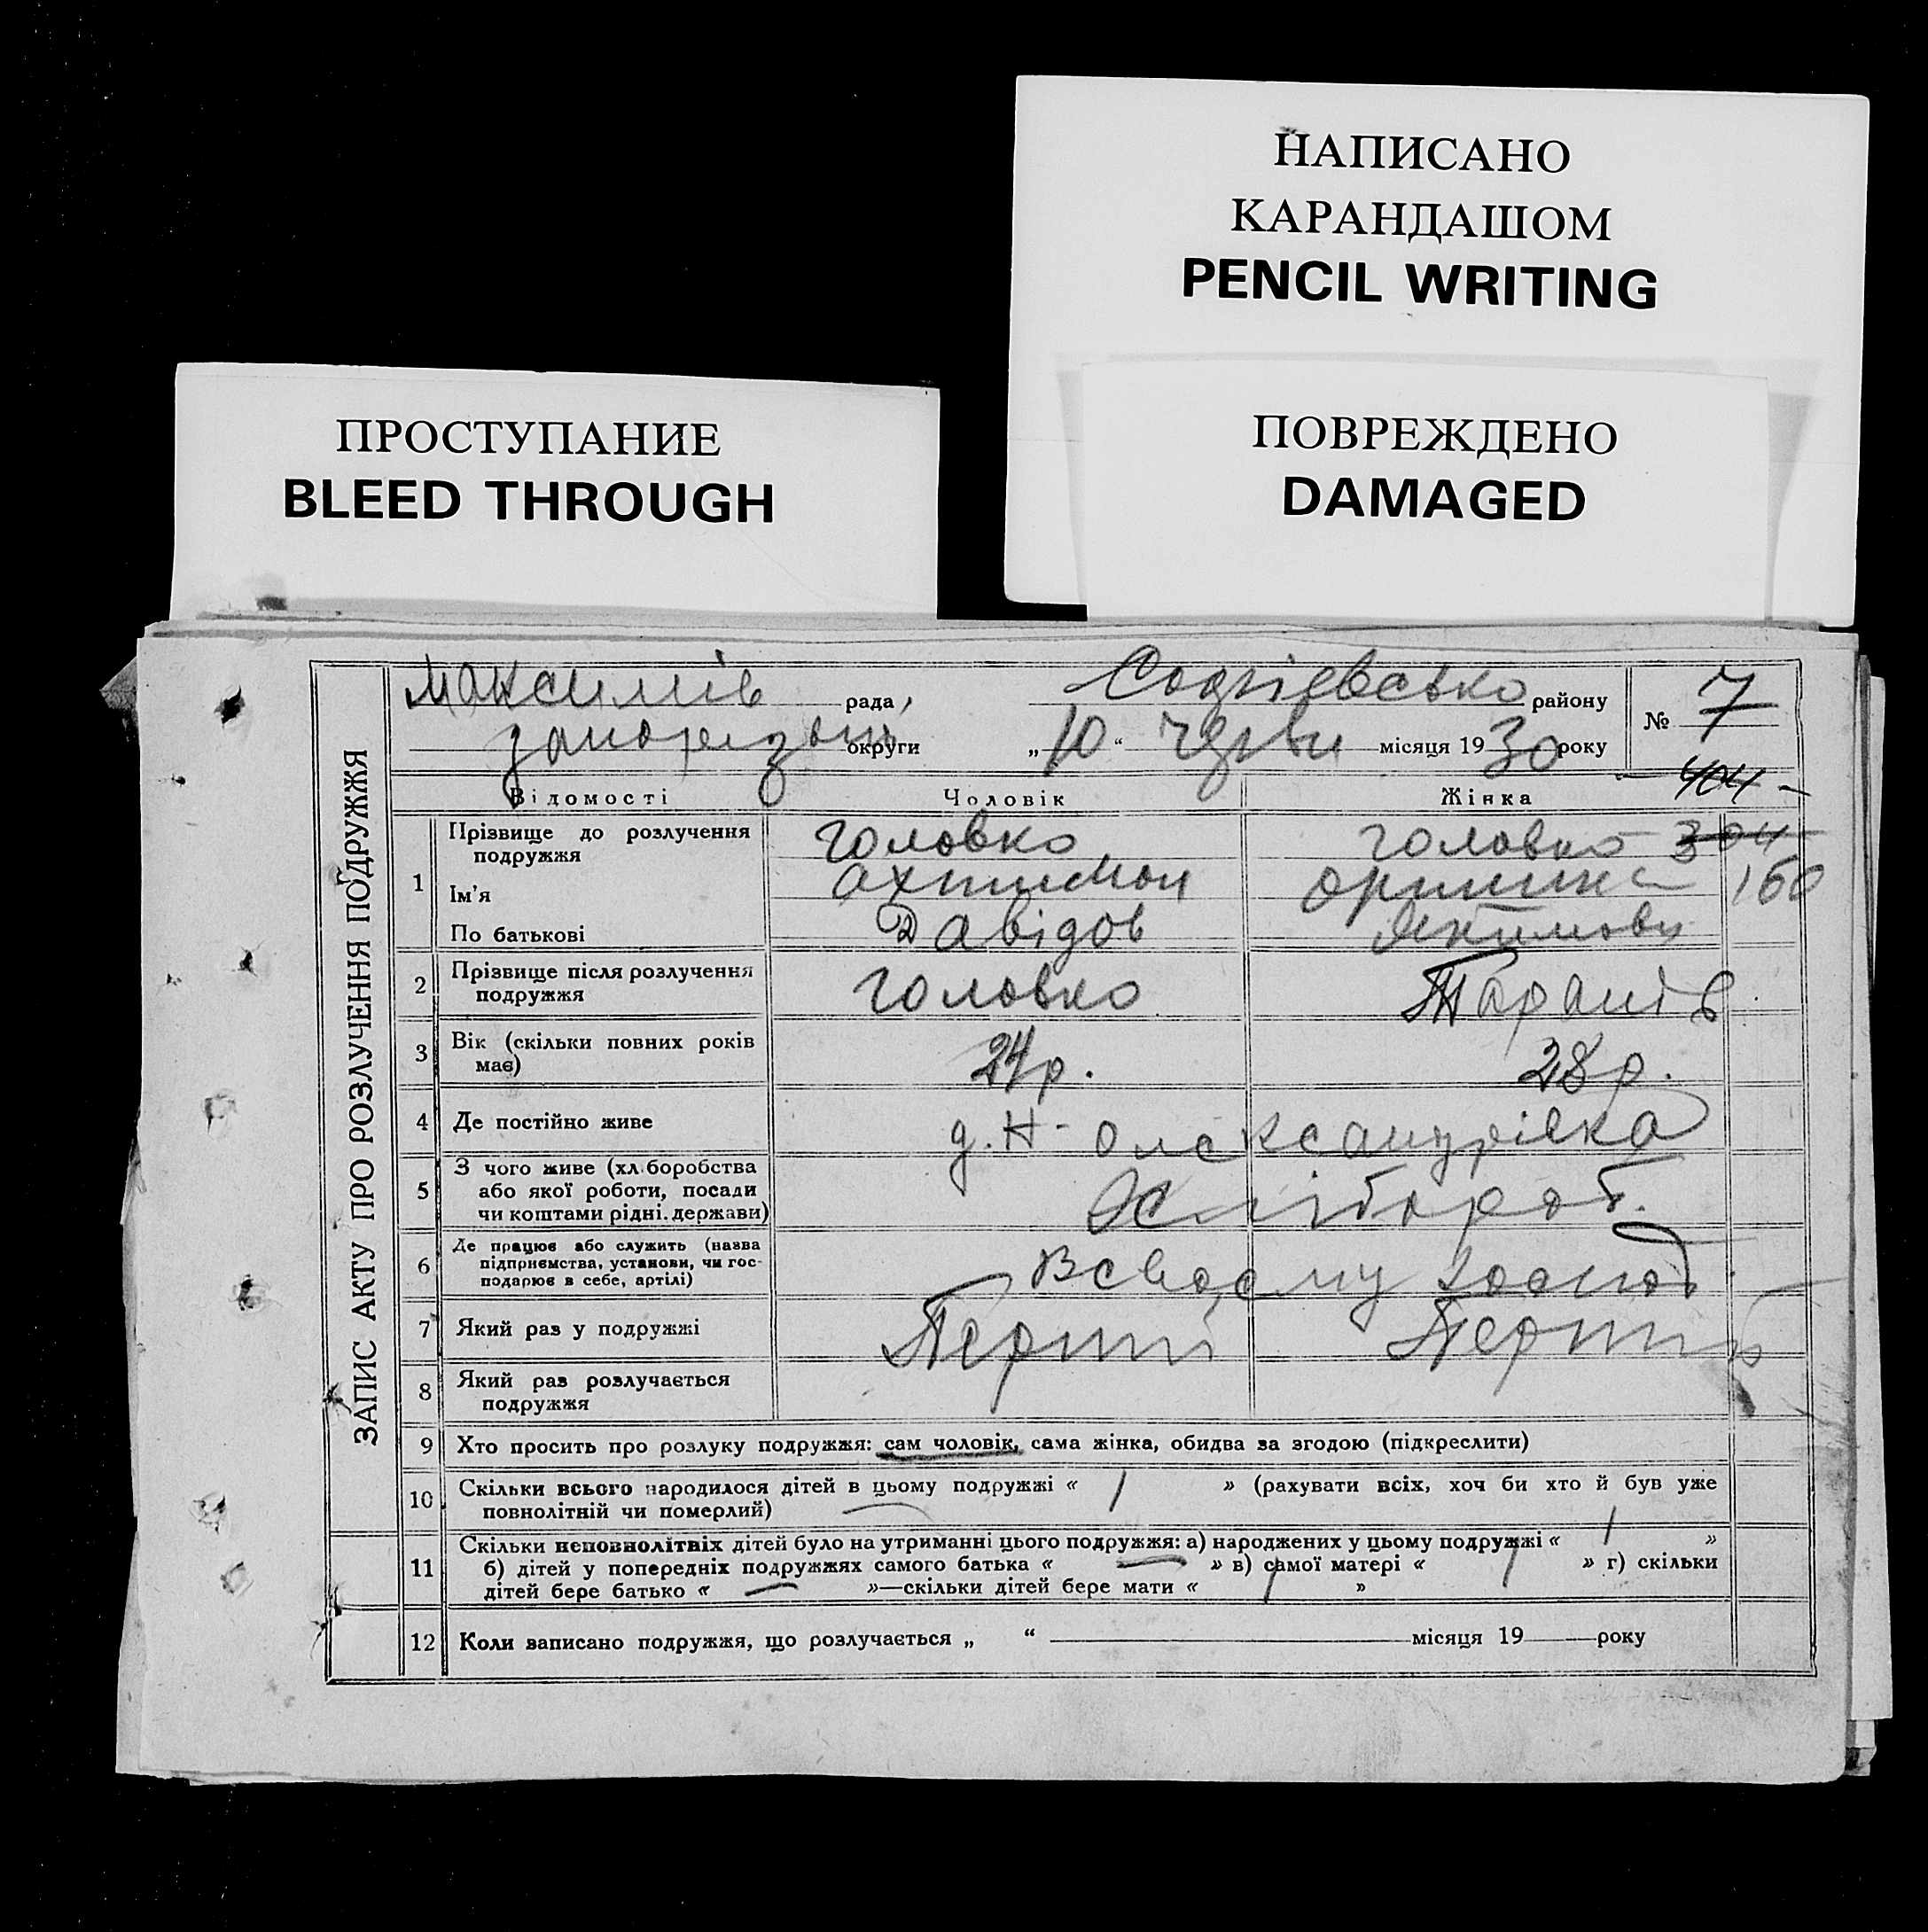 НАПИСАНО
КАРАНДАШОМ
PENCIL WRITING
ПРОСТУПАНИЕ
BLEED THROUGH
ПОВРЕЖДЕНО
DAMAGED
ЗАПИС АКТУ ПРО РОЗЛУЧЕННЯ ПОДРУЖЖЯ
рада, району
№ 7
округи „10“ місяця 1930 року
404
Відомості Чоловік Жінка
1 Прізвище до розлучення подружжя Головко Головко 304
Ім'я 160
По батькові Давідов Якимовн
2 Прізвище після розлучення
подружжя Головко Таранів
3 Вік (скільки повних років
має) 24 р. 28 р.
4 Де постійно живе д. Н-Олександрівка
5 З чого живе (хл.боробства
або якої роботи, посади
чи коштами рідні.держави) Хлібороб.
6 Де працює або служить (назва
підприємства, установи, чи гос-
подарює в себе, артілі) В своєму господ.
7 Який раз у подружжі
8 Який раз розлучається
подружжя
9 Хто просить про розлуку подружжя: сам чоловік, сама жінка, обидва за згодою (підкреслити)
10 Скільки всього народилося дітей в цьому подружжі « 1 » (рахувати всіх, хоч би хто й був уже
повнолітній чи померлий)
11 Скільки неповнолітніх дітей було на утриманні цього подружжя: а) народжених у цьому подружжі « 1 »
б) дітей у попередніх подружжях самого батька « — » в) самої матері « 1 » г) скільки
дітей бере батько « — »—скільки дітей бере мати « 1 »
12 Коли записано подружжя, що розлучається „ “ місяця 19 року